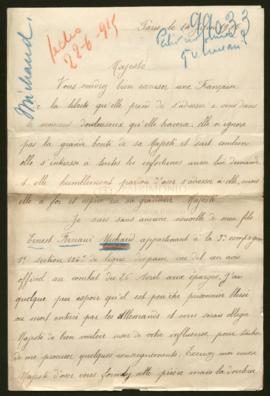 Michaud.
Paris, le
Majesté
Vous voudrez bien excuser une Française
la liberté qu'elle prend de s'adresser à vous dans
le moment douloureux qu'elle traverse elle n'ignore
pas la grande bonté de sa Majesté et sait combien
elle s'intéresse à toutes les infortunes aussi lui demande
t elle humblement pardon d'oser s'adresser à elle, mais
elle a foi et espoir en sa grandeur Majesté.
Je suis sans aucune nouvelle de mon fils
Ernest Fernand Michaud appartenant à la 3e compagnie
1e section de ligne disparu me dit un avis
officiel au combat du 26 Avril aux éparges, j'ai
quelque peu espoir qu'il est peut être prisonnier blessé
ou mort enterré par les Allemands et vous serais obligée
Majesté de bien vouloir user de votre influence pour tâcher
de me procurer quelques renseignements. Excusez moi encore
Majesté d'oser vous formuler cette prière mais la douleur